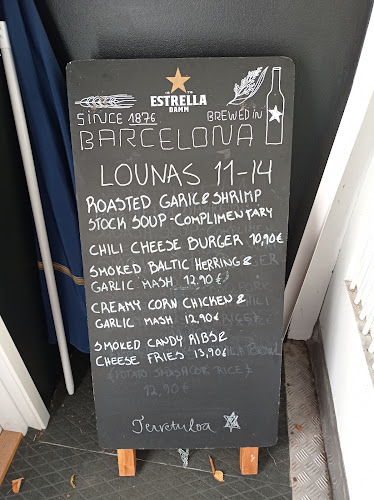 ESTRELLA
DAMM
SINCE 1876
BREWED IN
BARCELONA
LOUNAS 11-14
ROASTED GARIC & SHRIMP
STOCK SOUP - COMPLIMENTARY
CHILI CHEESE BURGER 10,90€
SMOKED BALTIC HERRING &
GARLIC MASH 12.90€
CREAMY CORN CHICKEN &
GARLIC MASH 12,90€
SMOKED CANDY RIBS &
CHEESE FRIES 13,90€
(POTATO SMASH OR RICE)
12,90€
Tervetuloa